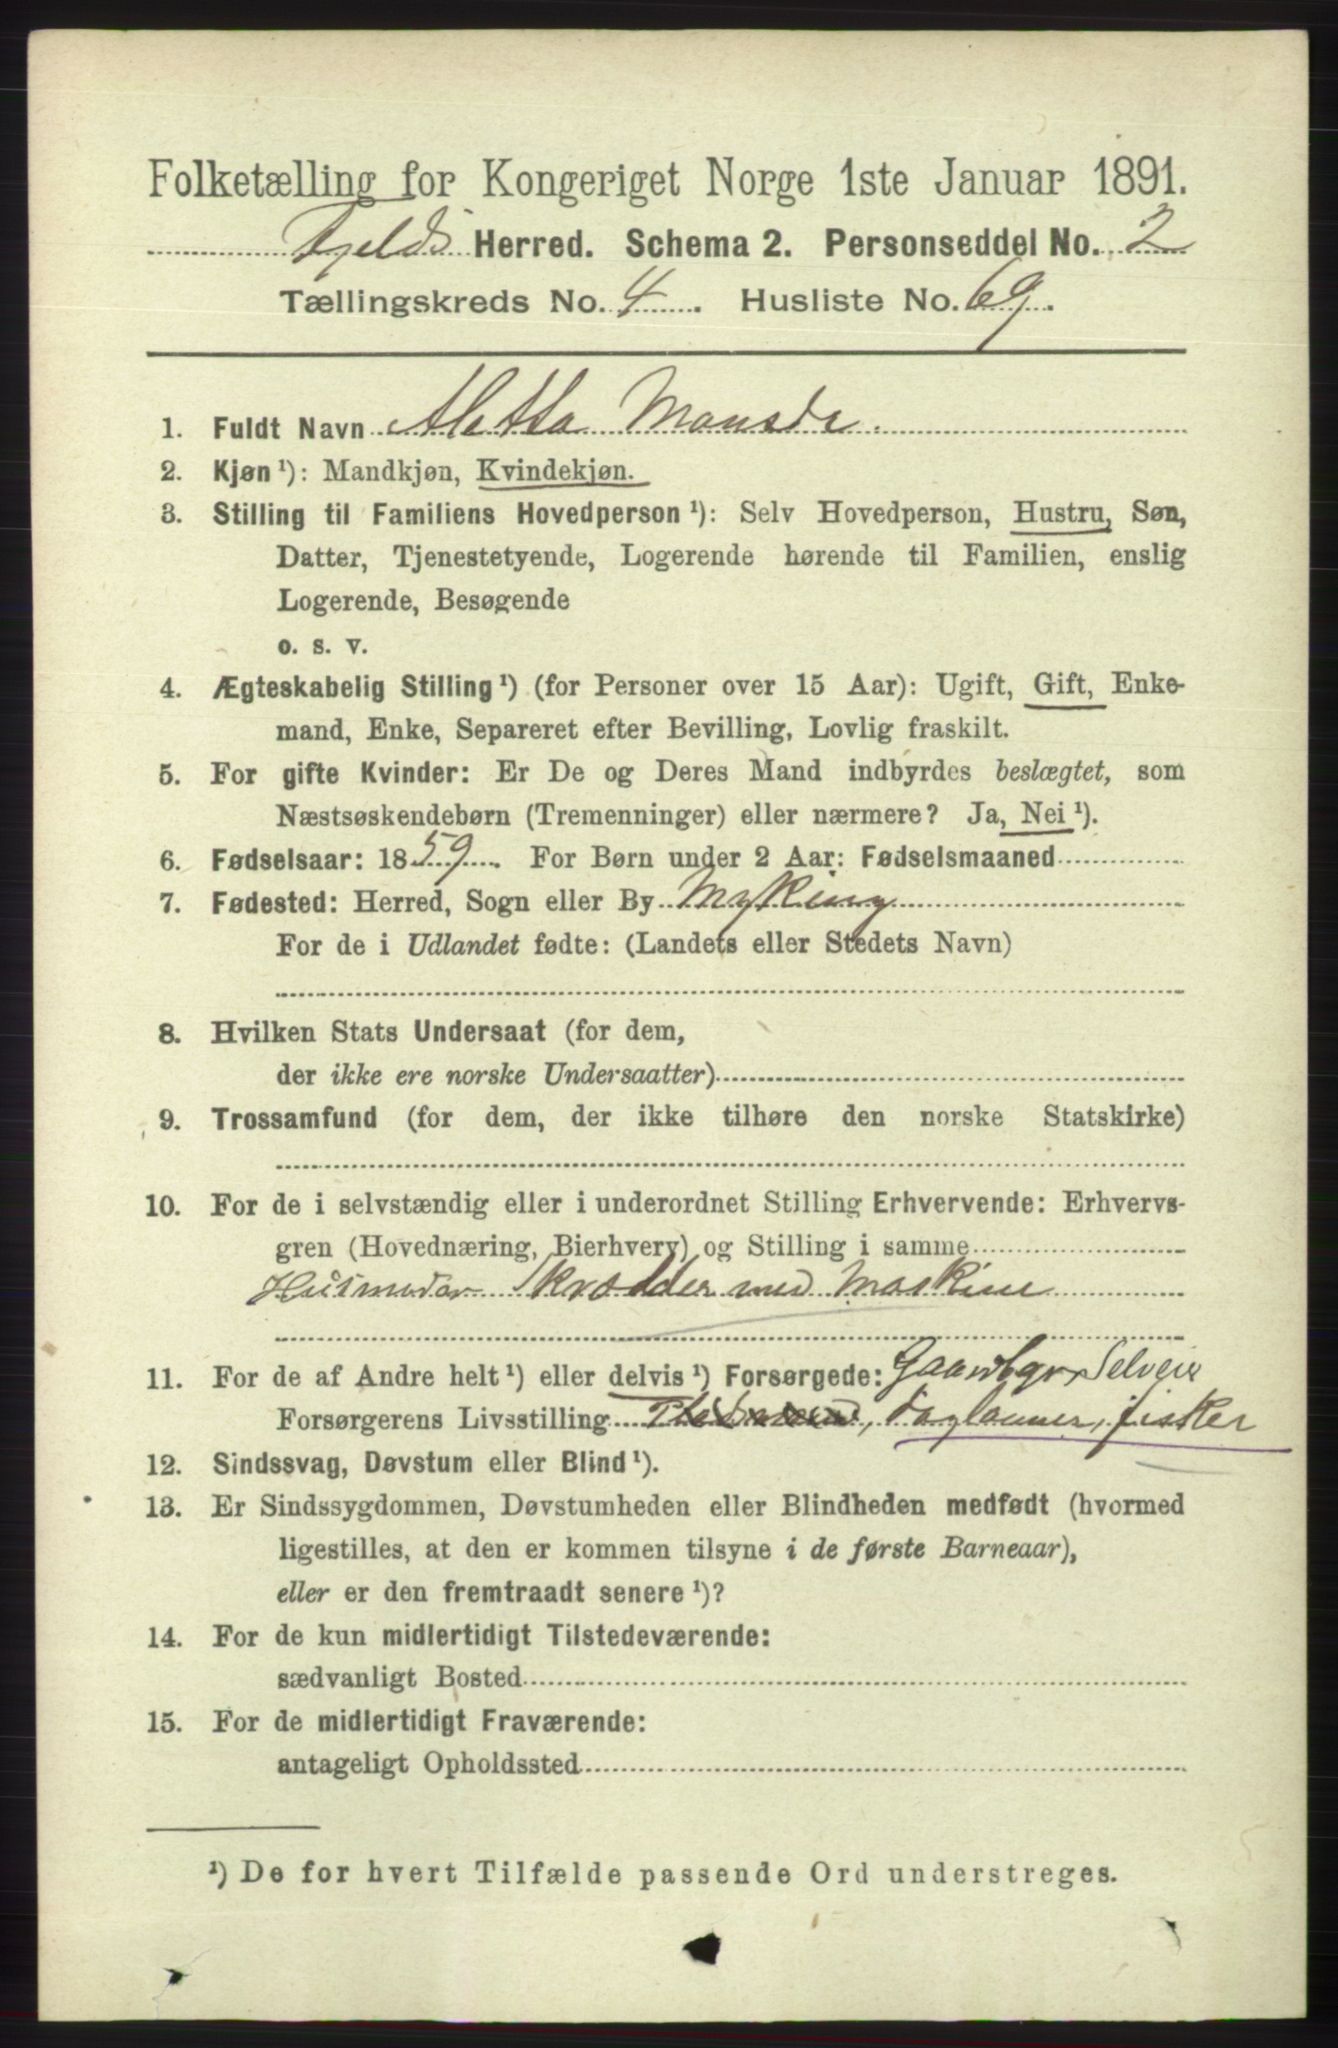 Folketælling for Kongeriget Norge 1ste Januar 1891.
Fjelds Herred. Schema 2. Personseddel No. 2
Tællingskreds No. 4. Husliste No. 69.
1. Fuldt Navn Aletta Monsdr.
2. Kjøn ¹): Mandkjøn, Kvindekjøn.
3. Stilling til Familiens Hovedperson ¹): Selv Hovedperson, Hustru, Søn,
Datter, Tjenestetyende, Logerende hørende til Familien, enslig
Logerende, Besøgende
o. s. v.
4. Ægteskabelig Stilling ¹) (for Personer over 15 Aar): Ugift, Gift, Enke-
mand, Enke, Separeret efter Bevilling, Lovlig fraskilt.
5. For gifte Kvinder: Er De og Deres Mand indbyrdes beslægtet, som
Næstsøskendebørn (Tremenninger) eller nærmere? Ja, Nei ¹).
6. Fødselsaar: 1859. For Børn under 2 Aar: Fødselsmaaned
7. Fødested: Herred, Sogn eller By Myking
For de i Udlandet fødte: (Landets eller Stedets Navn)
8. Hvilken Stats Undersaat (for dem,
der ikke ere norske Undersaatter)
9. Trossamfund (for dem, der ikke tilhøre den norske Statskirke)
10. For de i selvstændig eller i underordnet Stilling Erhvervende: Erhvervs-
gren (Hovednæring, Bierhverv) og Stilling i samme
Husmoder Skrædder med Maskine
11. For de af Andre helt ¹) eller delvis ¹) Forsørgede: Gaardbgr, Selveier
Forsørgerens Livsstilling , daglønner, fisker
12. Sindssvag, Døvstum eller Blind ¹).
13. Er Sindssygdommen, Døvstumheden eller Blindheden medfødt (hvormed
ligestilles, at den er kommen tilsyne i de første Barneaar),
eller er den fremtraadt senere ¹)?
14. For de kun midlertidigt Tilstedeværende:
sædvanligt Bosted
15. For de midlertidigt Fraværende:
antageligt Opholdssted
¹) De for hvert Tilfælde passende Ord understreges.